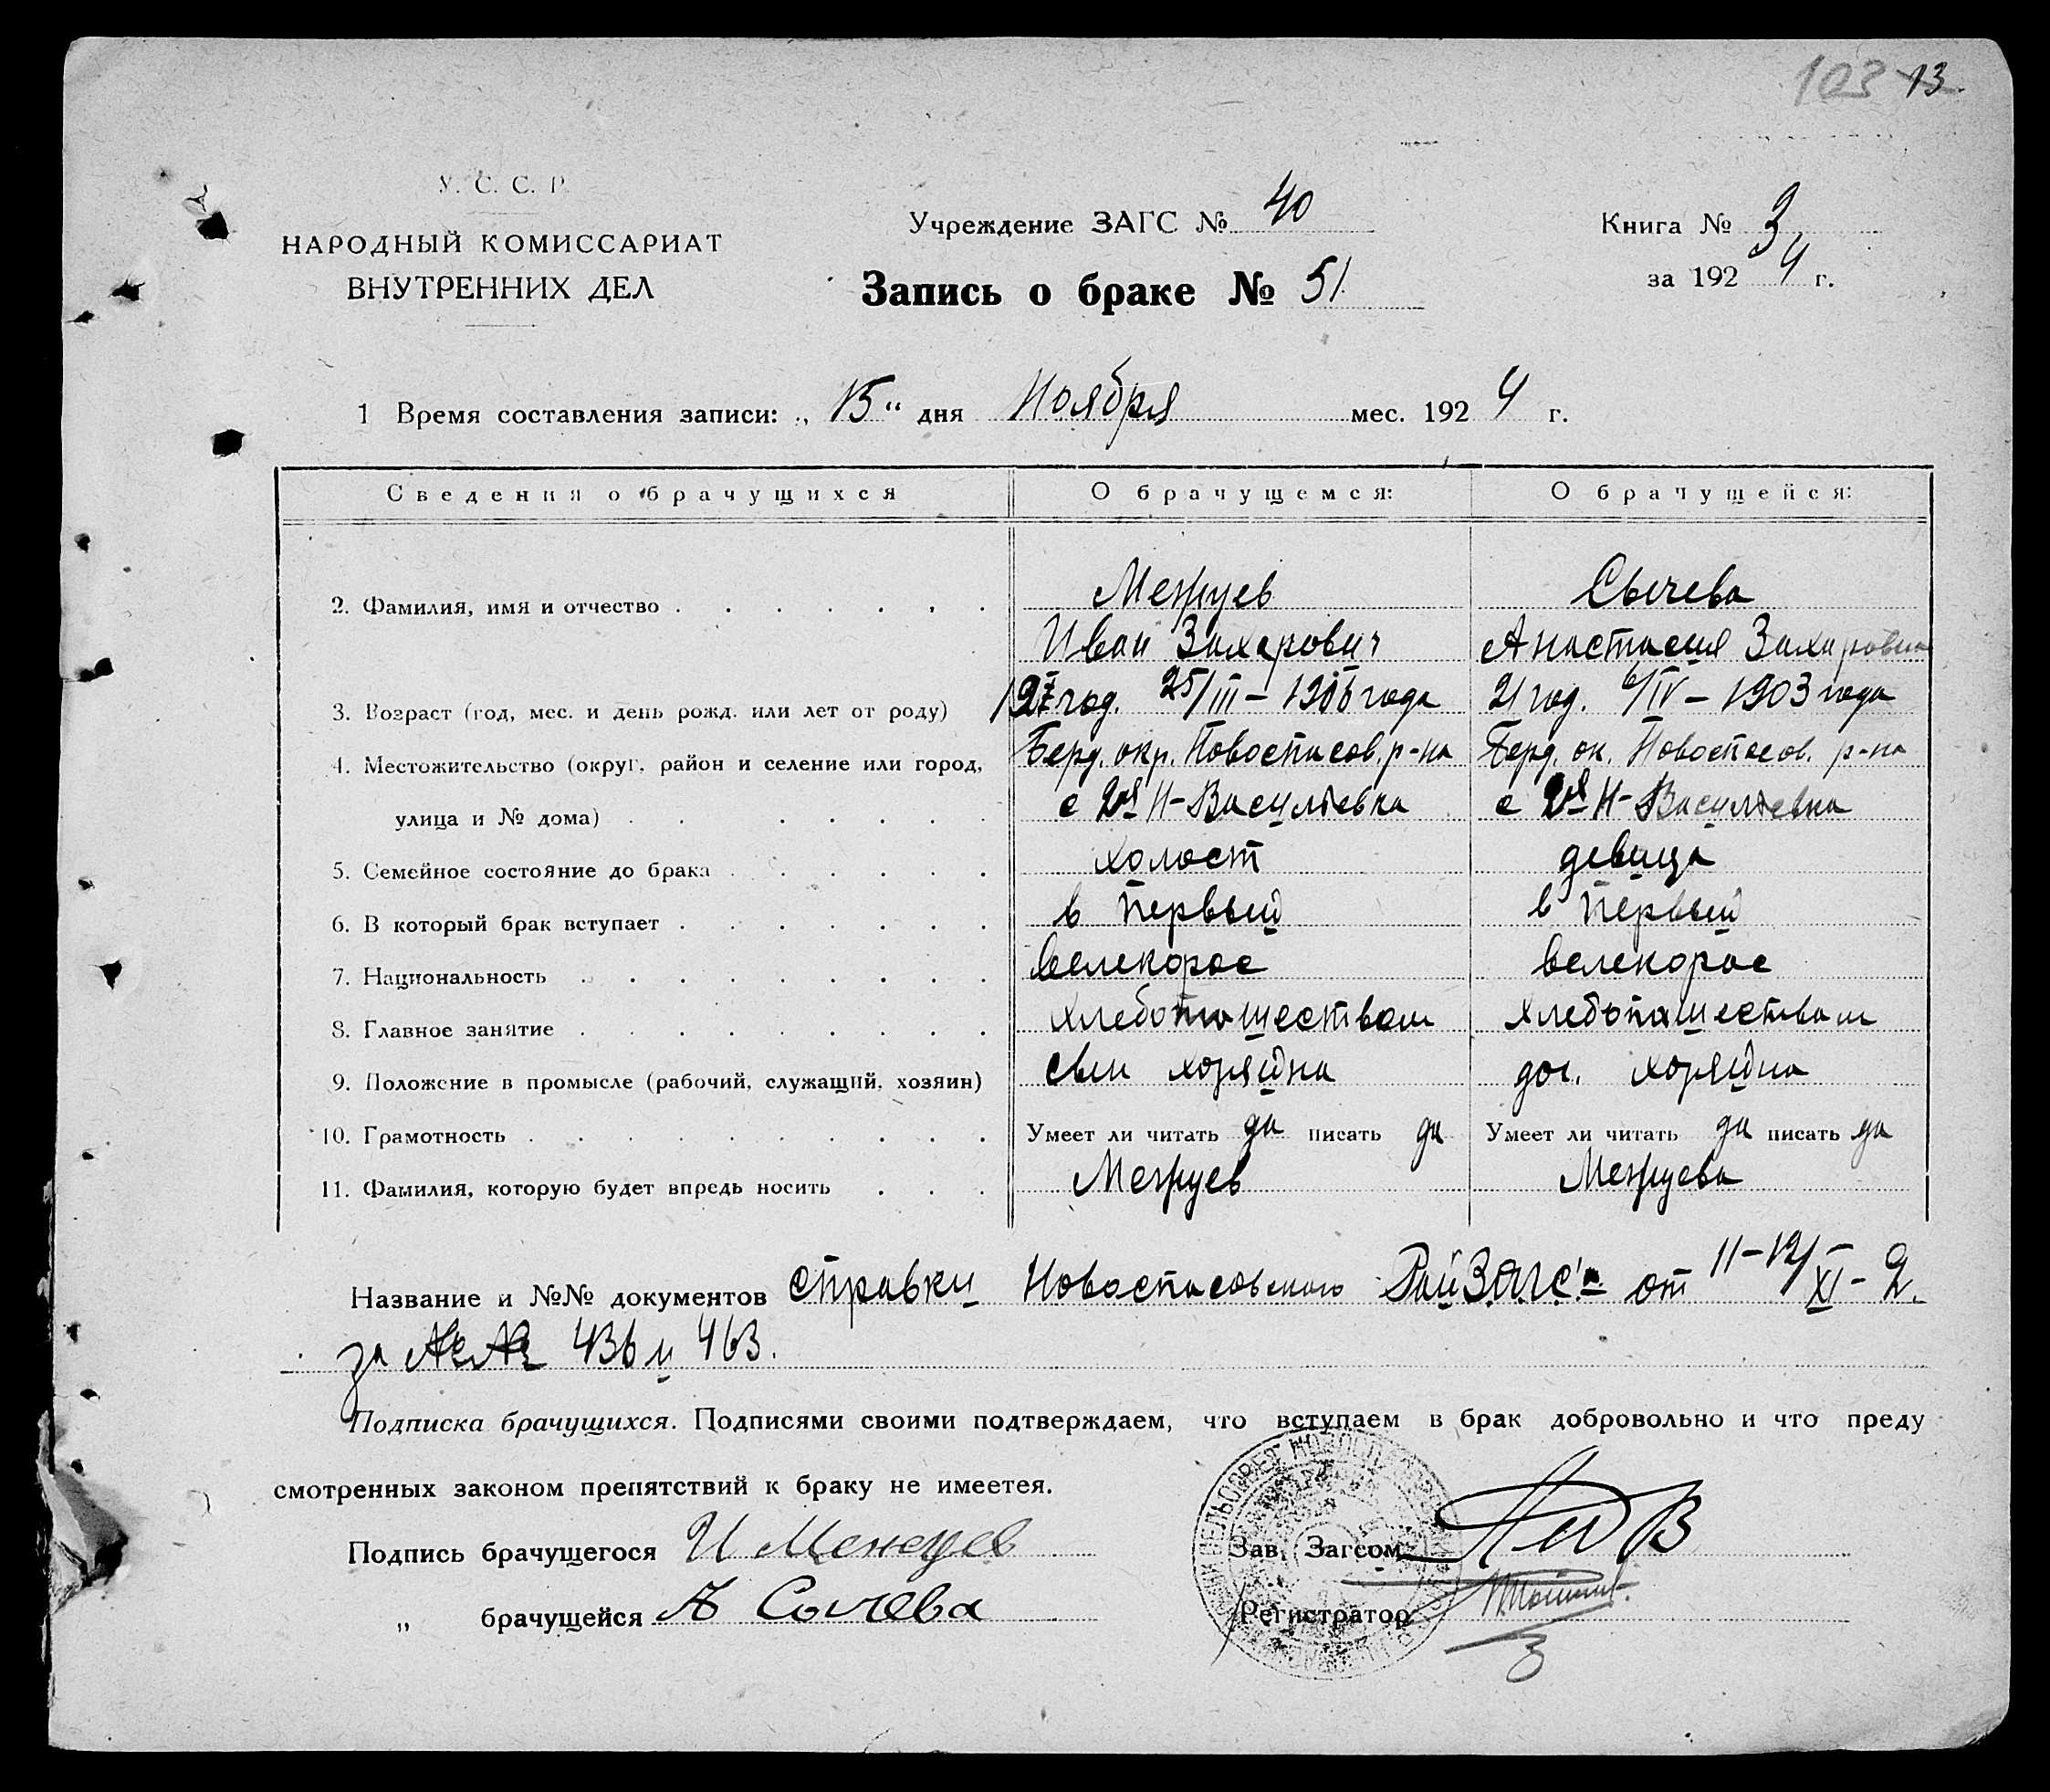 103 13.
У. С. С. Р.
НАРОДНЫЙ КОМИССАРИАТ
ВНУТРЕННИХ ДЕЛ
Учреждение ЗАГС № 40
Запись о браке № 51
Книга № 3
за 1924 г.
1 Время составления записи: „15" дня Ноября мес. 1924 г.
Сведения о брачущихся О брачущемся: О брачущейся:
2. Фамилия, имя и отчество Межуев Сычева
Иван Захарович Анастасия Захаровна
3. Возраст (год, мес. и день рожд. или лет от роду) год. 25/III – 1906 года 21 год. 6/IV – 1903 года
4. Местожительство (округ, район и селение или город, Берд. окр. Новоспасов. р-на Берд. ок. Новоспасов. р-на
улица и № дома) с 2я Н-Васильевка с 2я Н-Васильевка
5. Семейное состояние до брака холост девица
6. В который брак вступает в первый в первый
7. Национальность велекорос велекорос
8. Главное занятие хлебопашеством хлебопашеством
9. Положение в промысле (рабочий, служащий, хозяин) сын хозяина доч. хозяина
10. Грамотность Умеет ли читать да писать да Умеет ли читать да писать да
11. Фамилия, которую будет впредь носить Межуев Межуева
Название и №№ документов справки Новоспасовского РайЗАГС'а от 11–12/XI–2.
за №№ 436 и 463.
Подписка брачущихся. Подписями своими подтверждаем, что вступаем в брак добровольно и что преду
смотренных законом препятствий к браку не имеетея.
Подпись брачущегося И Межуев Зав. Загсом
„ брачущейся А Сычева Регистратор